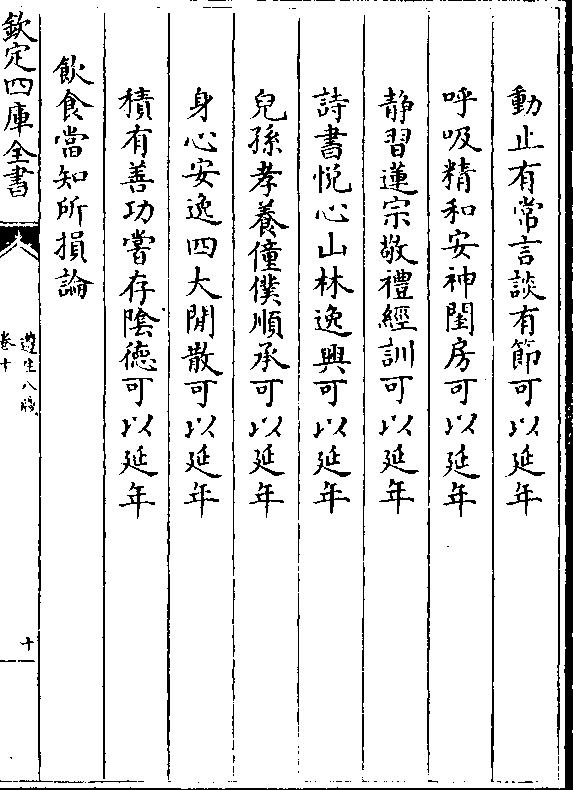 動止有常言談有節可以延年
呼吸精和安神閨房可以延年
静習蓮宗敬禮經訓可以延年
詩書悅心山林逸興可以延年
兒孫孝養僮僕順承可以延年
身心安逸四大閒散可以延年
積有善功嘗存隂德可以延年
飲食當知所損論
欽定四庫全書
遵生八牋
卷十
十